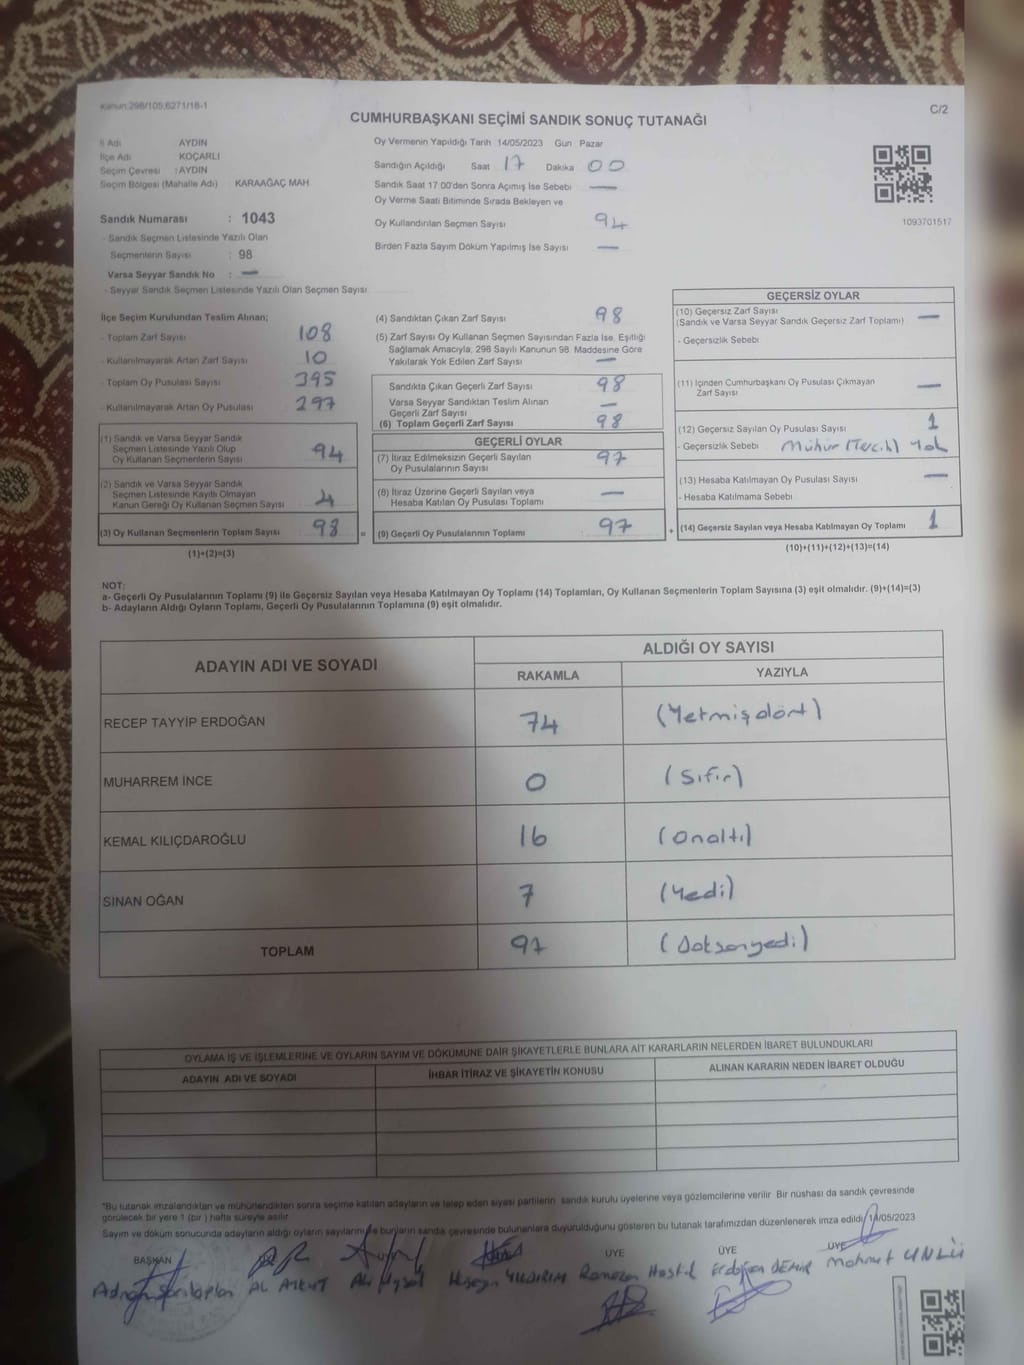 Kanun:298/105;6271/18-1
C/2
CUMHURBAŞKANI SEÇİMİ SANDIK SONUÇ TUTANAĞI
İl Adı : AYDIN
İlçe Adı : KOÇARLI
Seçim Çevresi : AYDIN
Seçim Bölgesi (Mahalle Adı) KARAAĞAÇ MAH.
Sandık Numarası : 1043
- Sandık Seçmen Listesinde Yazılı Olan
Seçmenlerin Sayısı : 98
Varsa Seyyar Sandık No : —
- Seyyar Sandık Seçmen Listesinde Yazılı Olan Seçmen Sayısı
Oy Vermenin Yapıldığı Tarih 14/05/2023 Gün Pazar
Sandığın Açıldığı Saat 17 Dakika 00
Sandık Saat 17 00'den Sonra Açımış İse Sebebi —
Oy Verme Saati Bitiminde Sırada Bekleyen ve
Oy Kullandırılan Seçmen Sayısı 94
Birden Fazla Sayım Döküm Yapılmış İse Sayısı —
1093701517
İlçe Seçim Kurulundan Teslim Alınan;
- Toplam Zarf Sayısı 108
- Kullanılmayarak Artan Zarf Sayısı 10
- Toplam Oy Pusulası Sayısı 395
- Kullanılmayarak Artan Oy Pusulası 297
(1) Sandık ve Varsa Seyyar Sandık
Seçmen Listesinde Yazılı Olup
Oy Kullanan Seçmenlerin Sayısı 94
(2) Sandık ve Varsa Seyyar Sandık
Seçmen Listesinde Kayıtlı Olmayan
Kanun Gereği Oy Kullanan Seçmen Sayısı 4
(3) Oy Kullanan Seçmenlerin Toplam Sayısı 98
(1)+(2)=(3)
(4) Sandıktan Çıkan Zarf Sayısı 98
(5) Zarf Sayısı Oy Kullanan Seçmen Sayısından Fazla İse, Eşitliği
Sağlamak Amacıyla, 298 Sayılı Kanunun 98. Maddesine Göre
Yakılarak Yok Edilen Zarf Sayısı —
Sandıkta Çıkan Geçerli Zarf Sayısı 98
Varsa Seyyar Sandıktan Teslim Alınan
Geçerli Zarf Sayısı —
(6) Toplam Geçerli Zarf Sayısı 98
GEÇERLİ OYLAR
(7) İtiraz Edilmeksizin Geçerli Sayılan
Oy Pusulalarının Sayısı 97
(8) İtiraz Üzerine Geçerli Sayılan veya
Hesaba Katılan Oy Pusulası Toplamı —
= (9) Geçerli Oy Pusulalarının Toplamı : 97 +
GEÇERSİZ OYLAR
(10) Geçersiz Zarf Sayısı
(Sandık ve Varsa Seyyar Sandık Geçersiz Zarf Toplamı) —
- Geçersizlik Sebebi
(11) İçinden Cumhurbaşkanı Oy Pusulası Çıkmayan
Zarf Sayısı —
(12) Geçersiz Sayılan Oy Pusulası Sayısı 1
- Geçersizlik Sebebi Mühür (Tercih) Yok
(13) Hesaba Katılmayan Oy Pusulası Sayısı —
- Hesaba Katılmama Sebebi
(14) Geçersiz Sayılan veya Hesaba Katılmayan Oy Toplamı 1
(10)+(11)+(12)+(13)=(14)
NOT:
a- Geçerli Oy Pusulalarının Toplamı (9) ile Geçersiz Sayılan veya Hesaba Katılmayan Oy Toplamı (14) Toplamları, Oy Kullanan Seçmenlerin Toplam Sayısına (3) eşit olmalıdır. (9)+(14)=(3)
b- Adayların Aldığı Oyların Toplamı, Geçerli Oy Pusulalarının Toplamına (9) eşit olmalıdır.
ADAYIN ADI VE SOYADI
ALDIĞI OY SAYISI
RAKAMLA YAZIYLA
RECEP TAYYİP ERDOĞAN 74 (Yetmişdört)
MUHARREM İNCE 0 (Sıfır)
KEMAL KILIÇDAROĞLU 16 (Onaltı)
SİNAN OĞAN 7 (Yedi)
TOPLAM 97 (Doksanyedi)
OYLAMA İŞ VE İŞLEMLERİNE VE OYLARIN SAYIM VE DÖKÜMÜNE DAİR ŞİKAYETLERLE BUNLARA AİT KARARLARIN NELERDEN İBARET BULUNDUKLARI
ADAYIN ADI VE SOYADI İHBAR İTİRAZ VE ŞİKAYETİN KONUSU ALINAN KARARIN NEDEN İBARET OLDUĞU
*Bu tutanak imzalandıktan ve mühürlendikten sonra seçime katılan adayların ve talep eden siyasi partilerin sandık kurulu üyelerine veya gözlemcilerine verilir Bir nüshası da sandık çevresinde
görülecek bir yere 1 (bir ) hafta süreyle asılır
Sayım ve döküm sonucunda adayların aldığı oyların sayılarını ve bunların sandık çevresinde bulunanlara duyurulduğunu gösteren bu tutanak tarafımızdan düzenlenerek imza edildi 14/05/2023
BAŞKAN ÜYE ÜYE ÜYE
Ali Uysal Hüseyin YILDIRIM Ramazan Erdoğan DEMİR Mahmut ÜNLÜ